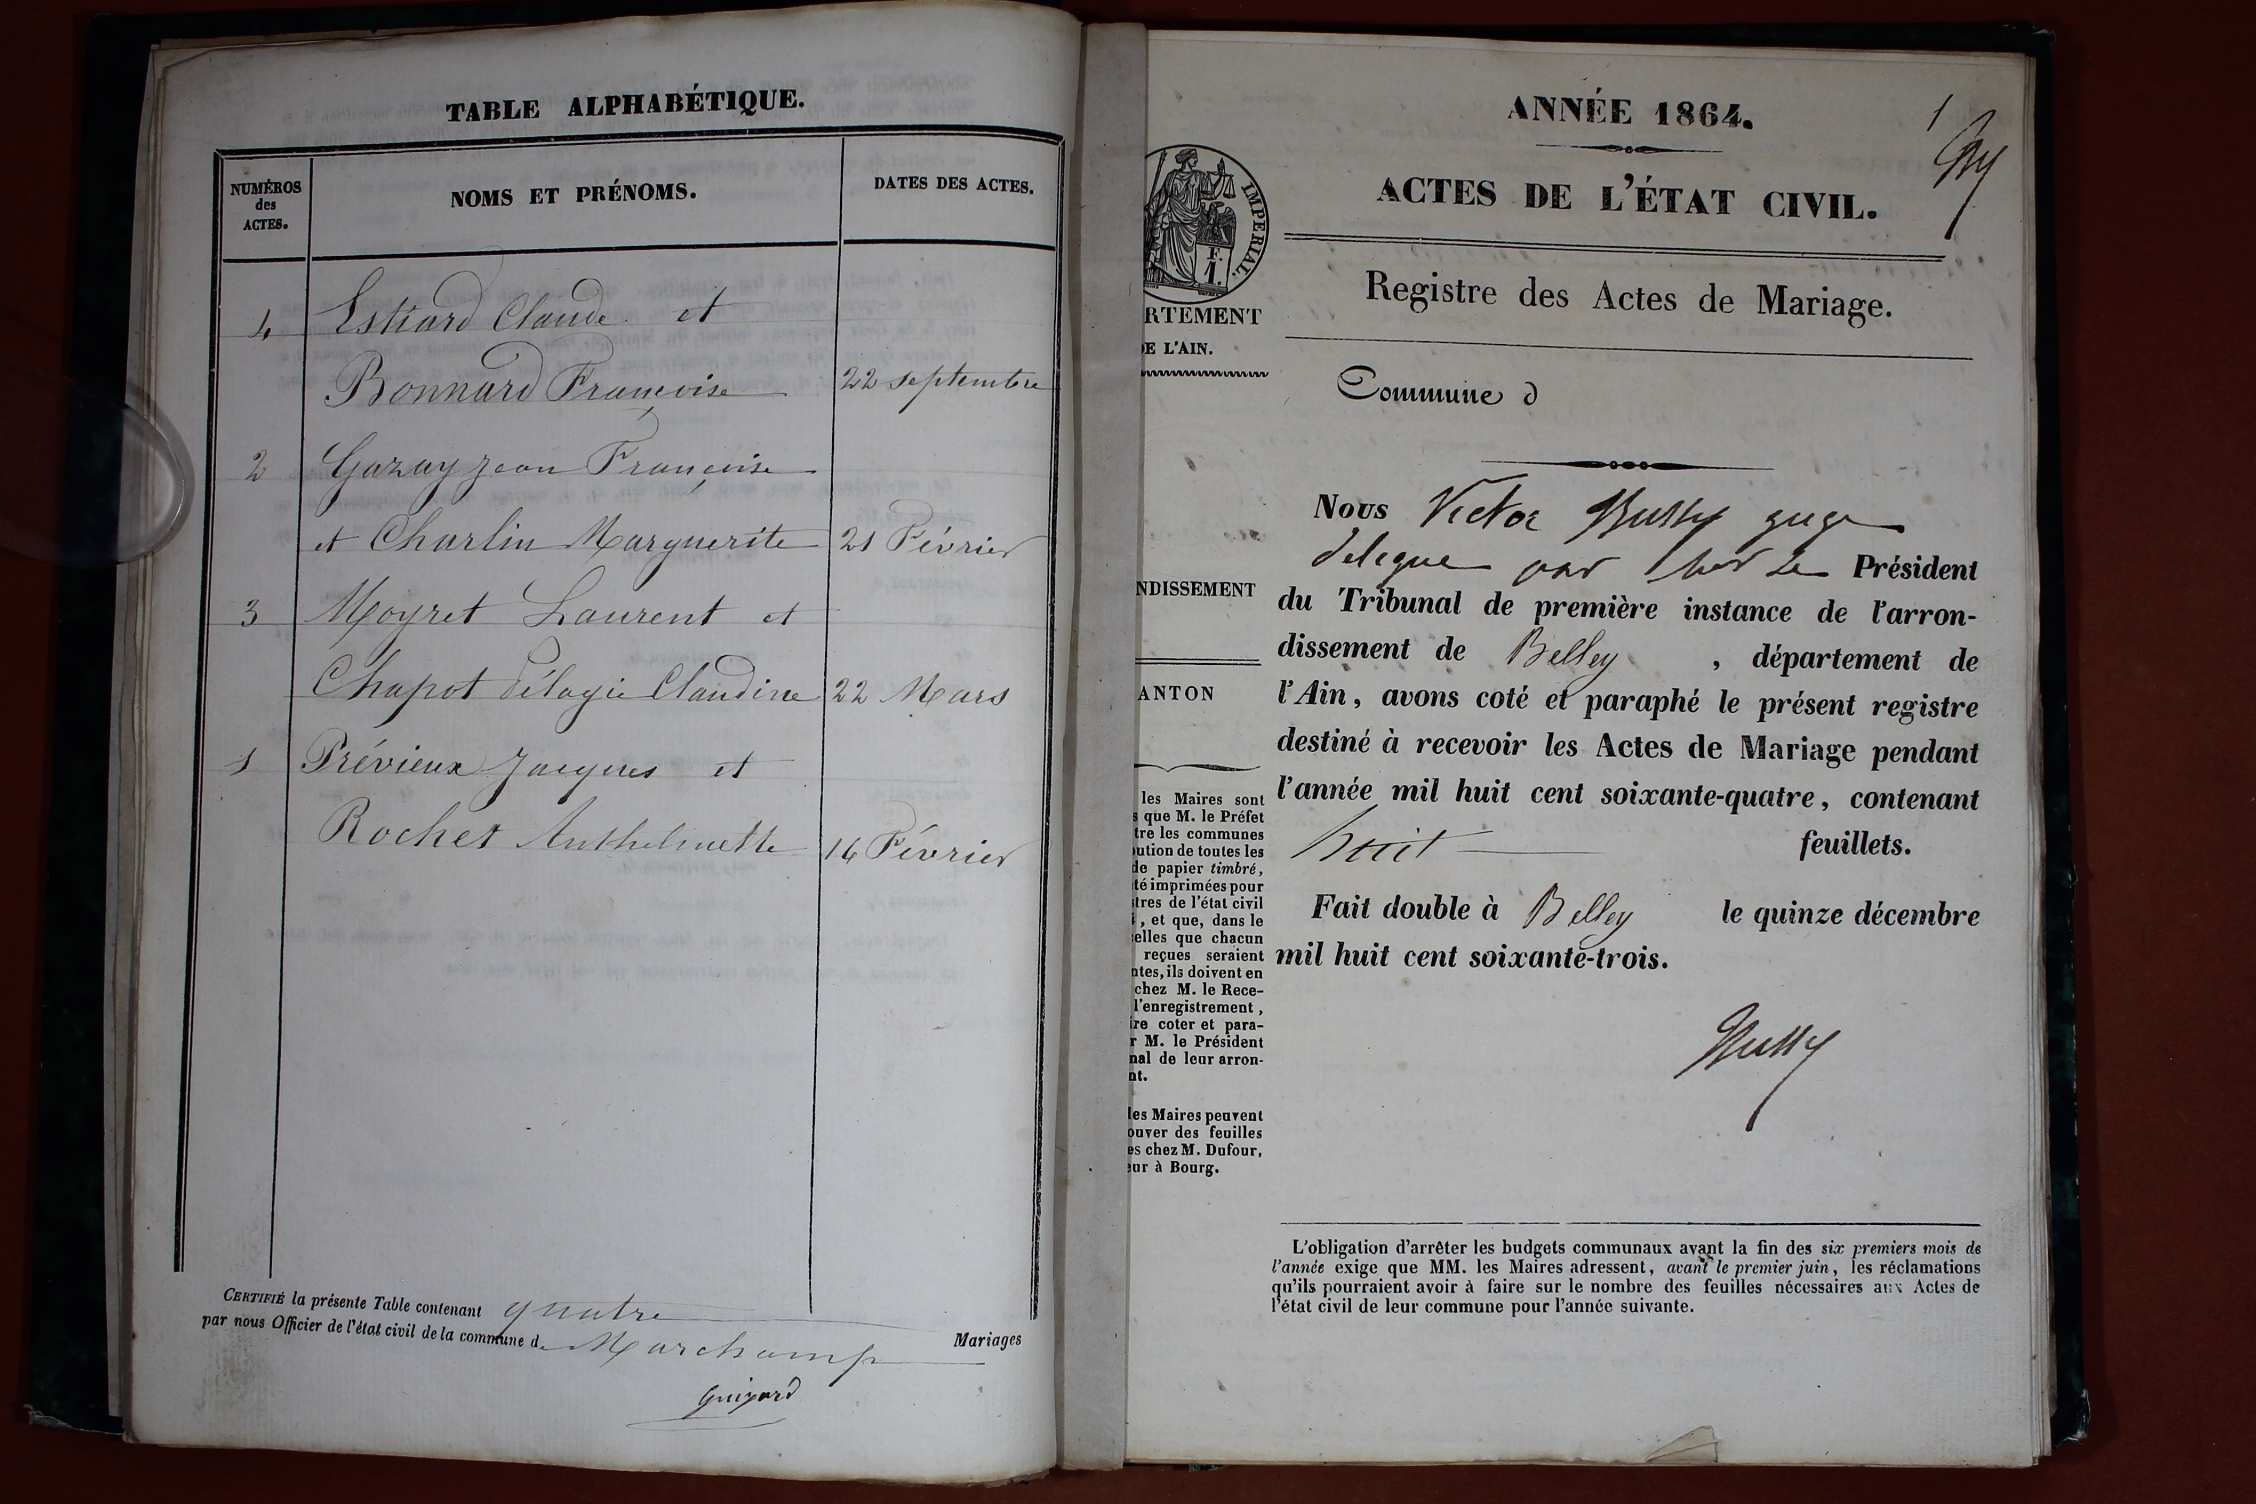 TABLE ALPHABÉTIQUE.
NUMÉROS
des
ACTES.
NOMS ET PRÉNOMS.
DATES DES ACTES.
4 Estiard Claude et
Bonnard Françoise 22 septembre
2 Gazay jean Françoise
et Charlin Marguerite 21 Février
3 Moyret Laurent et
Chapot Pélagie Claudine 22 Mars
1 Prévieux Jacques et
Rochet Anthelmette 14 Février
CERTIFIÉ la présente Table contenant quatre Mariages
par nous Officier de l'état civil de la commune de Marchamp
Guigard
1
ANNÉE 1864.
ACTES DE L'ÉTAT CIVIL.
Registre des Actes de Mariage.
IMPERIAL.
F.
1.
RTEMENT
DE L'AIN.
Commune d
NDISSEMENT
ANTON
les Maires sont
s que M. le Préfet
tre les communes
ution de toutes les
de papier timbré,
té imprimées pour
tres de l'état civil
, et que, dans le
elles que chacun
reçues seraient
ntes, ils doivent en
chez M. le Rece-
l'enregistrement,
ire coter et para-
r M. le Président
nal de leur arron-
nt.
les Maires peuvent
ouver des feuilles
es chez M. Dufour,
eur à Bourg.
Nous Victor juge
délégué par le Président
du Tribunal de première instance de l'arron-
dissement de Belley, département de
l'Ain, avons coté et paraphé le présent registre
destiné à recevoir les Actes de Mariage pendant
l'année mil huit cent soixante-quatre, contenant
huit feuillets.
Fait double à Belley le quinze décembre
mil huit cent soixante-trois.
L'obligation d'arrêter les budgets communaux avant la fin des six premiers mois de
l'année exige que MM. les Maires adressent, avant le premier juin, les réclamations
qu'ils pourraient avoir à faire sur le nombre des feuilles nécessaires aux Actes de
l'état civil de leur commune pour l'année suivante.